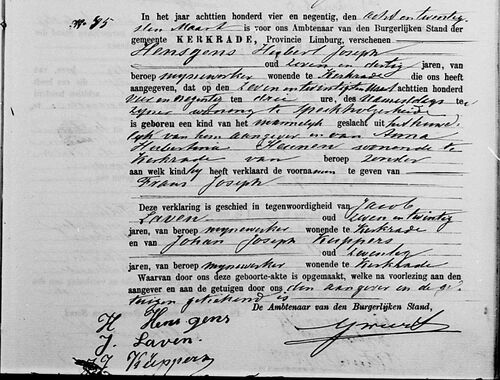 No 75
In het jaar achttien honderd vier en negentig, den acht en twintig
sten Maart is voor ons Ambtenaar van den Burgerlijken Stand der
gemeente KERKRADE, Provincie Limburg, verschenen
Hensgens Hubert Joseph
oud zeven en dertig jaren, van
beroep mijnwerker wonende te Kerkrade die ons heeft
aangegeven, dat op den zeven en twintigsten Maart achttien honderd
vier en negentig te drie ure, des namiddags te
zijner woning
is geboren een kind van het mannelijk geslacht uit het huwe
lijk van hem aangever en van Anna
Hubertina Heunen wonende te
Kerkrade van beroep zonder
aan welk kind hij heeft verklaard de voornamen te geven van
Frans Joseph
Deze verklaring is geschied in tegenwoordigheid van Jacob
Laven oud zeven en twintig
jaren, van beroep mijnwerker wonende te Kerkrade
en van Johan Joseph Küppers
oud zeventig
jaren, van beroep mijnwerker wonende te Kerkrade
Waarvan door ons deze geboorte-akte is opgemaakt, welke na voorlezing aan den
aangever en aan de getuigen door ons den aangever en de ge
tuigen geteekend is
De Ambtenaar van den Burgerlijken Stand,
H Hensgens
J. Laven.
J J Küppers